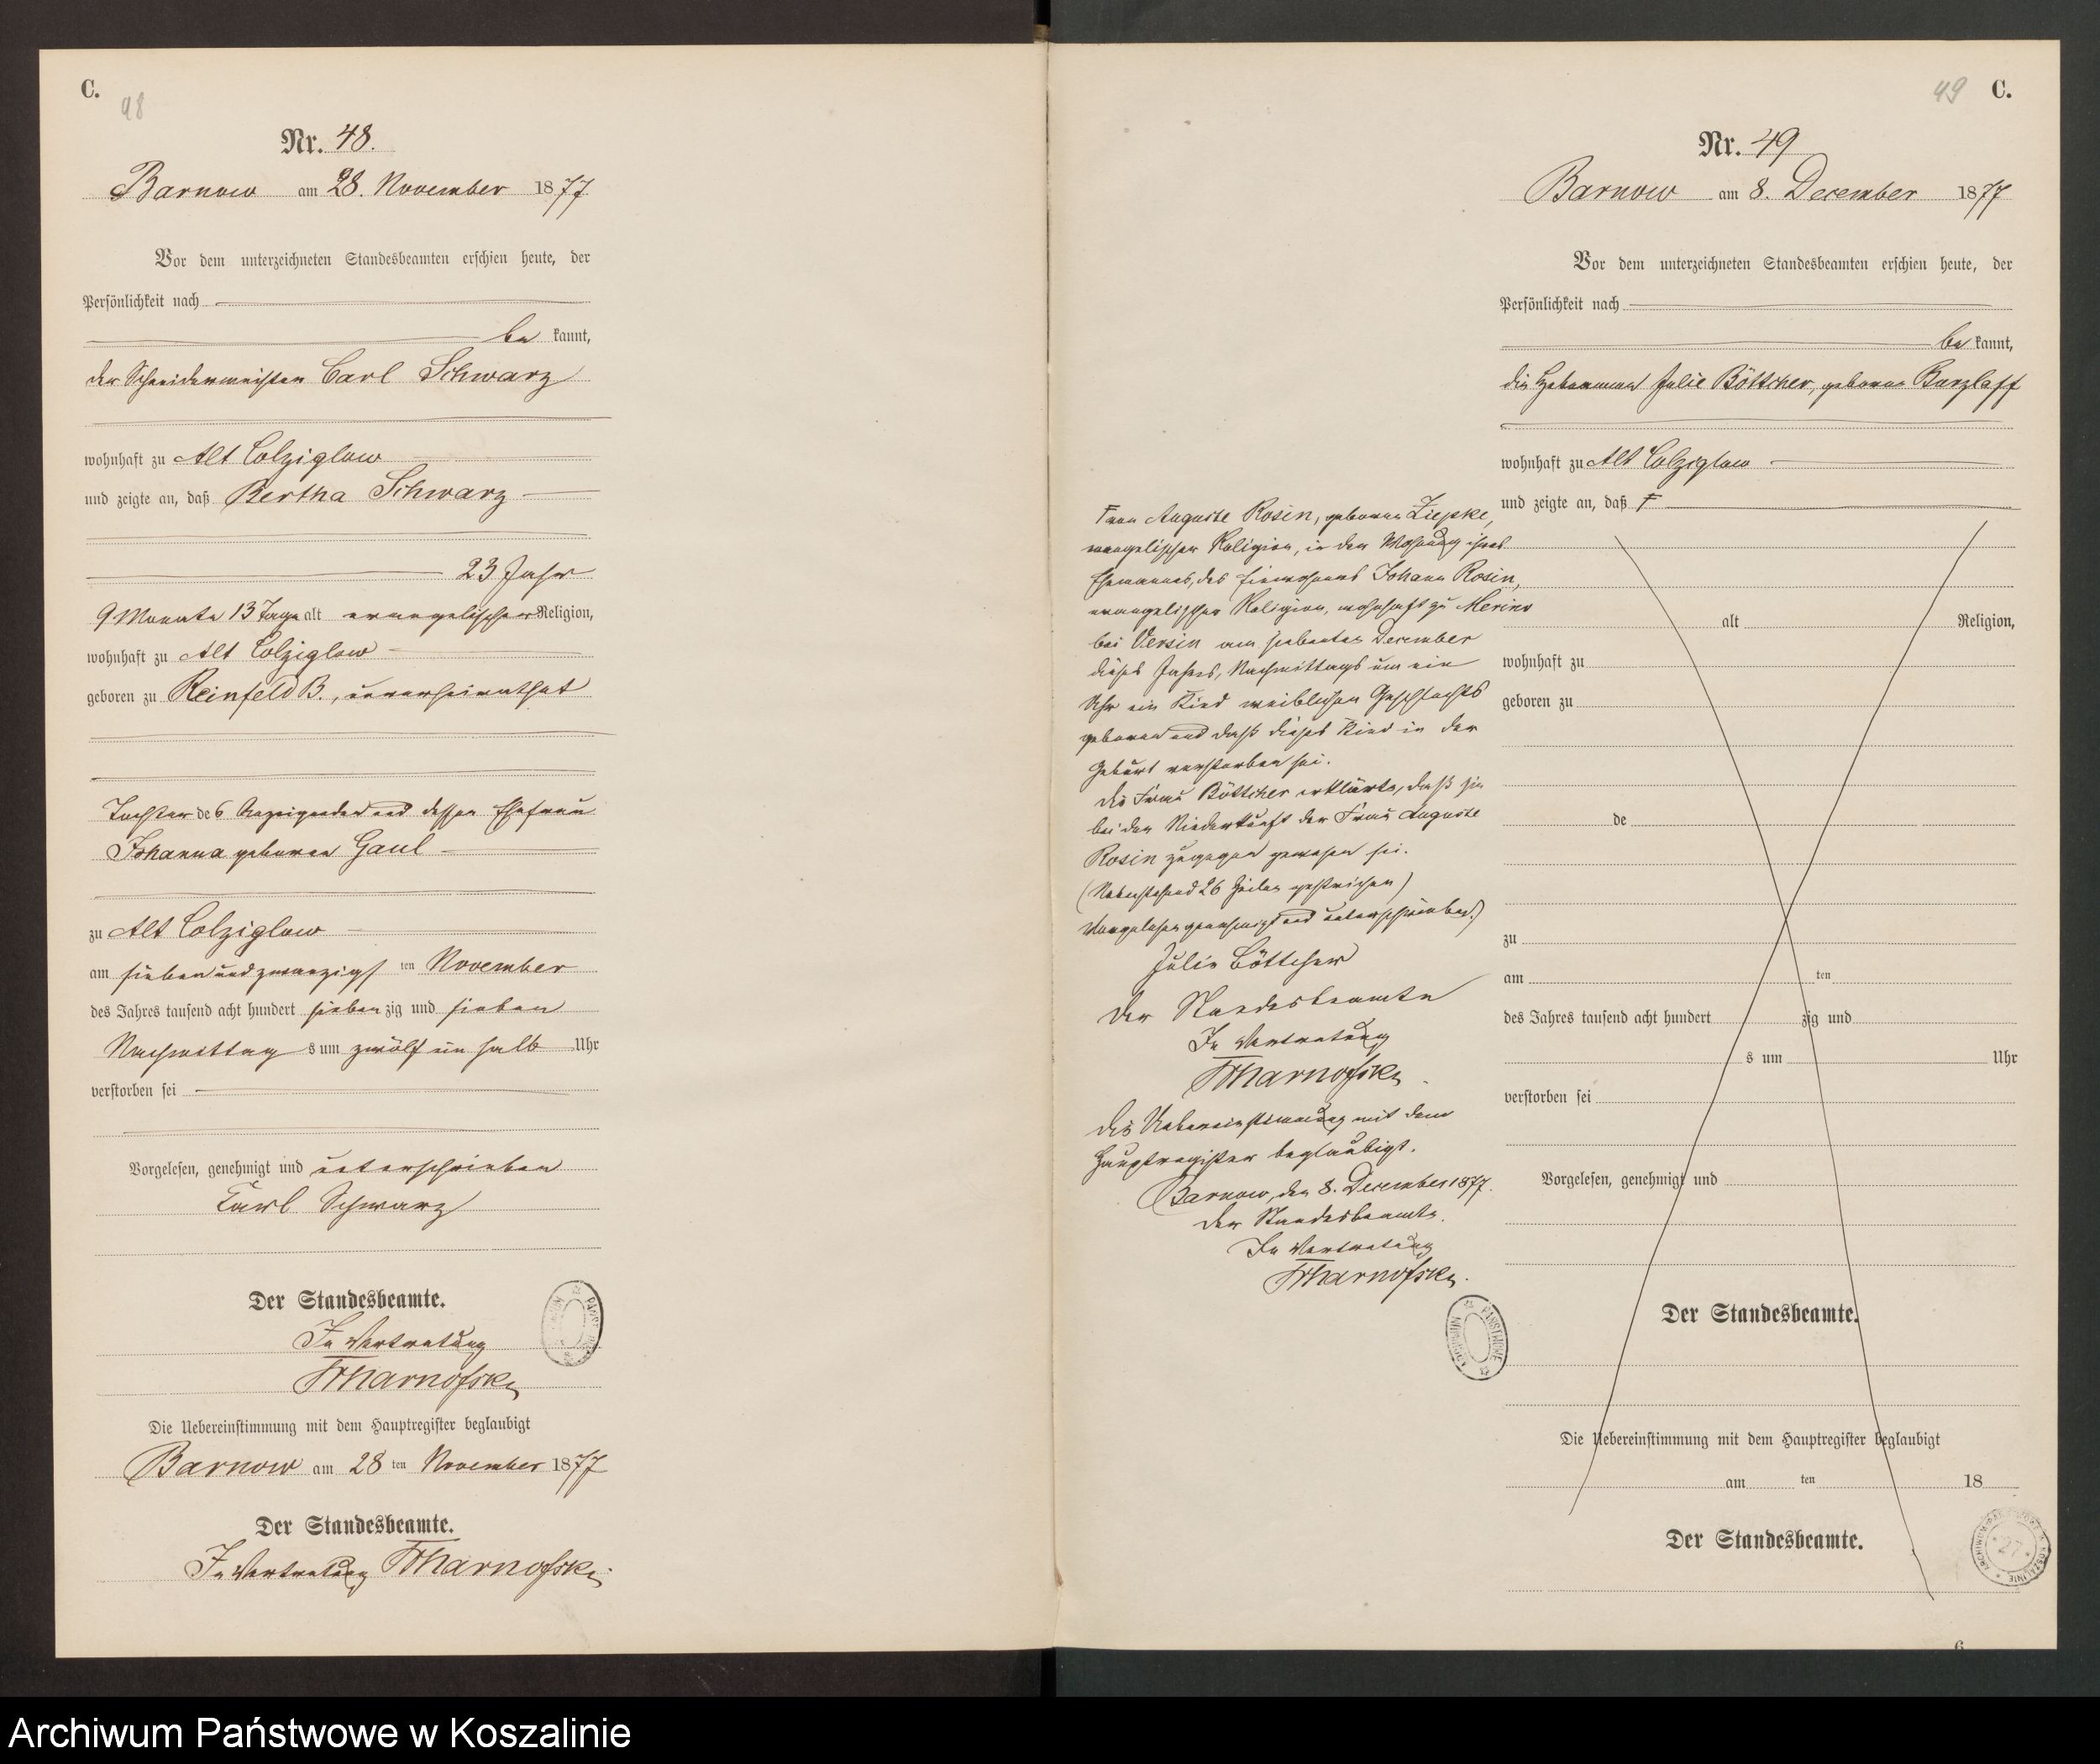 C.
48
Nr. 48.
Barnow am 28. November 1877
Vor dem unterzeichneten Standesbeamten erschien heute, der
Persönlichkeit nach
be kannt,
der Schneidermeister Carl Schwarz
wohnhaft zu Alt Colziglow
und zeigte an, daß Bertha Schwarz
23 Jahr
9 Monate 13 Tage alt evangelischer Religion,
wohnhaft zu Alt Colziglow
geboren zu Reinfeld B., unverheirathet
Tochter des Anzeigenden und dessen Ehefrau
Johanna geboren Gaul
zu Alt Colziglow
am sieben und zwanzigs ten November
des Jahres tausend acht hundert sieben zig und sieben
Nachmittag s um zwölf ein halb Uhr
verstorben sei
Vorgelesen, genehmigt und unterschrieben
Karl Schwarz
Der Standesbeamte.
In Vertretung
Die Uebereinstimmung mit dem Hauptregister beglaubigt
Barnow am 28 ten November 1877
Der Standesbeamte.
In Vertretung
49 C.
Nr. 49
Barnow am 8. December 1877
Vor dem unterzeichneten Standesbeamten erschien heute, der
Persönlichkeit nach
be kannt,
die Hebamme Julie Böttcher, geboren Barzlaff
wohnhaft zu Alt Colziglow
und zeigte an, daß F
Frau Auguste Rosin, geboren Ziepke,
evangelischer Religion, in der Wohnung ihres
Ehemannes, des Einwohners Johann Rosin,
evangelischer Religion, wohnhaft zu Merino
bei Versin am siebenten December
dieses Jahres, Nachmittags um ein
Uhr ein Kind weiblichen Geschlechts
geboren und daß dieses Kind in der
Geburt verstorben sei.
Die Frau Böttcher erklärte, daß sie
bei der Niederkunft der Frau Auguste
Rosin zugegen gewesen sei.
(Nebenstehend 26 Zeilen gestrichen)
Vorgelesen genehmigt und unterschrieben.)
Julie Böttcher
Der Standesbeamte
In Vertretung
Die Uebereinstimmung mit dem
Hauptregister beglaubigt.
Barnow, den 8. December 1877.
Der Standesbeamte.
In Vertretung
alt Religion,
wohnhaft zu
geboren zu
de
zu
am ten
des Jahres tausend acht hundert zig und
s um Uhr
verstorben sei
Vorgelesen, genehmigt und
Der Standesbeamte.
Die Uebereinstimmung mit dem Hauptregister beglaubigt
am ten 18
Der Standesbeamte.
6
Archiwum Państwowe w Koszalinie